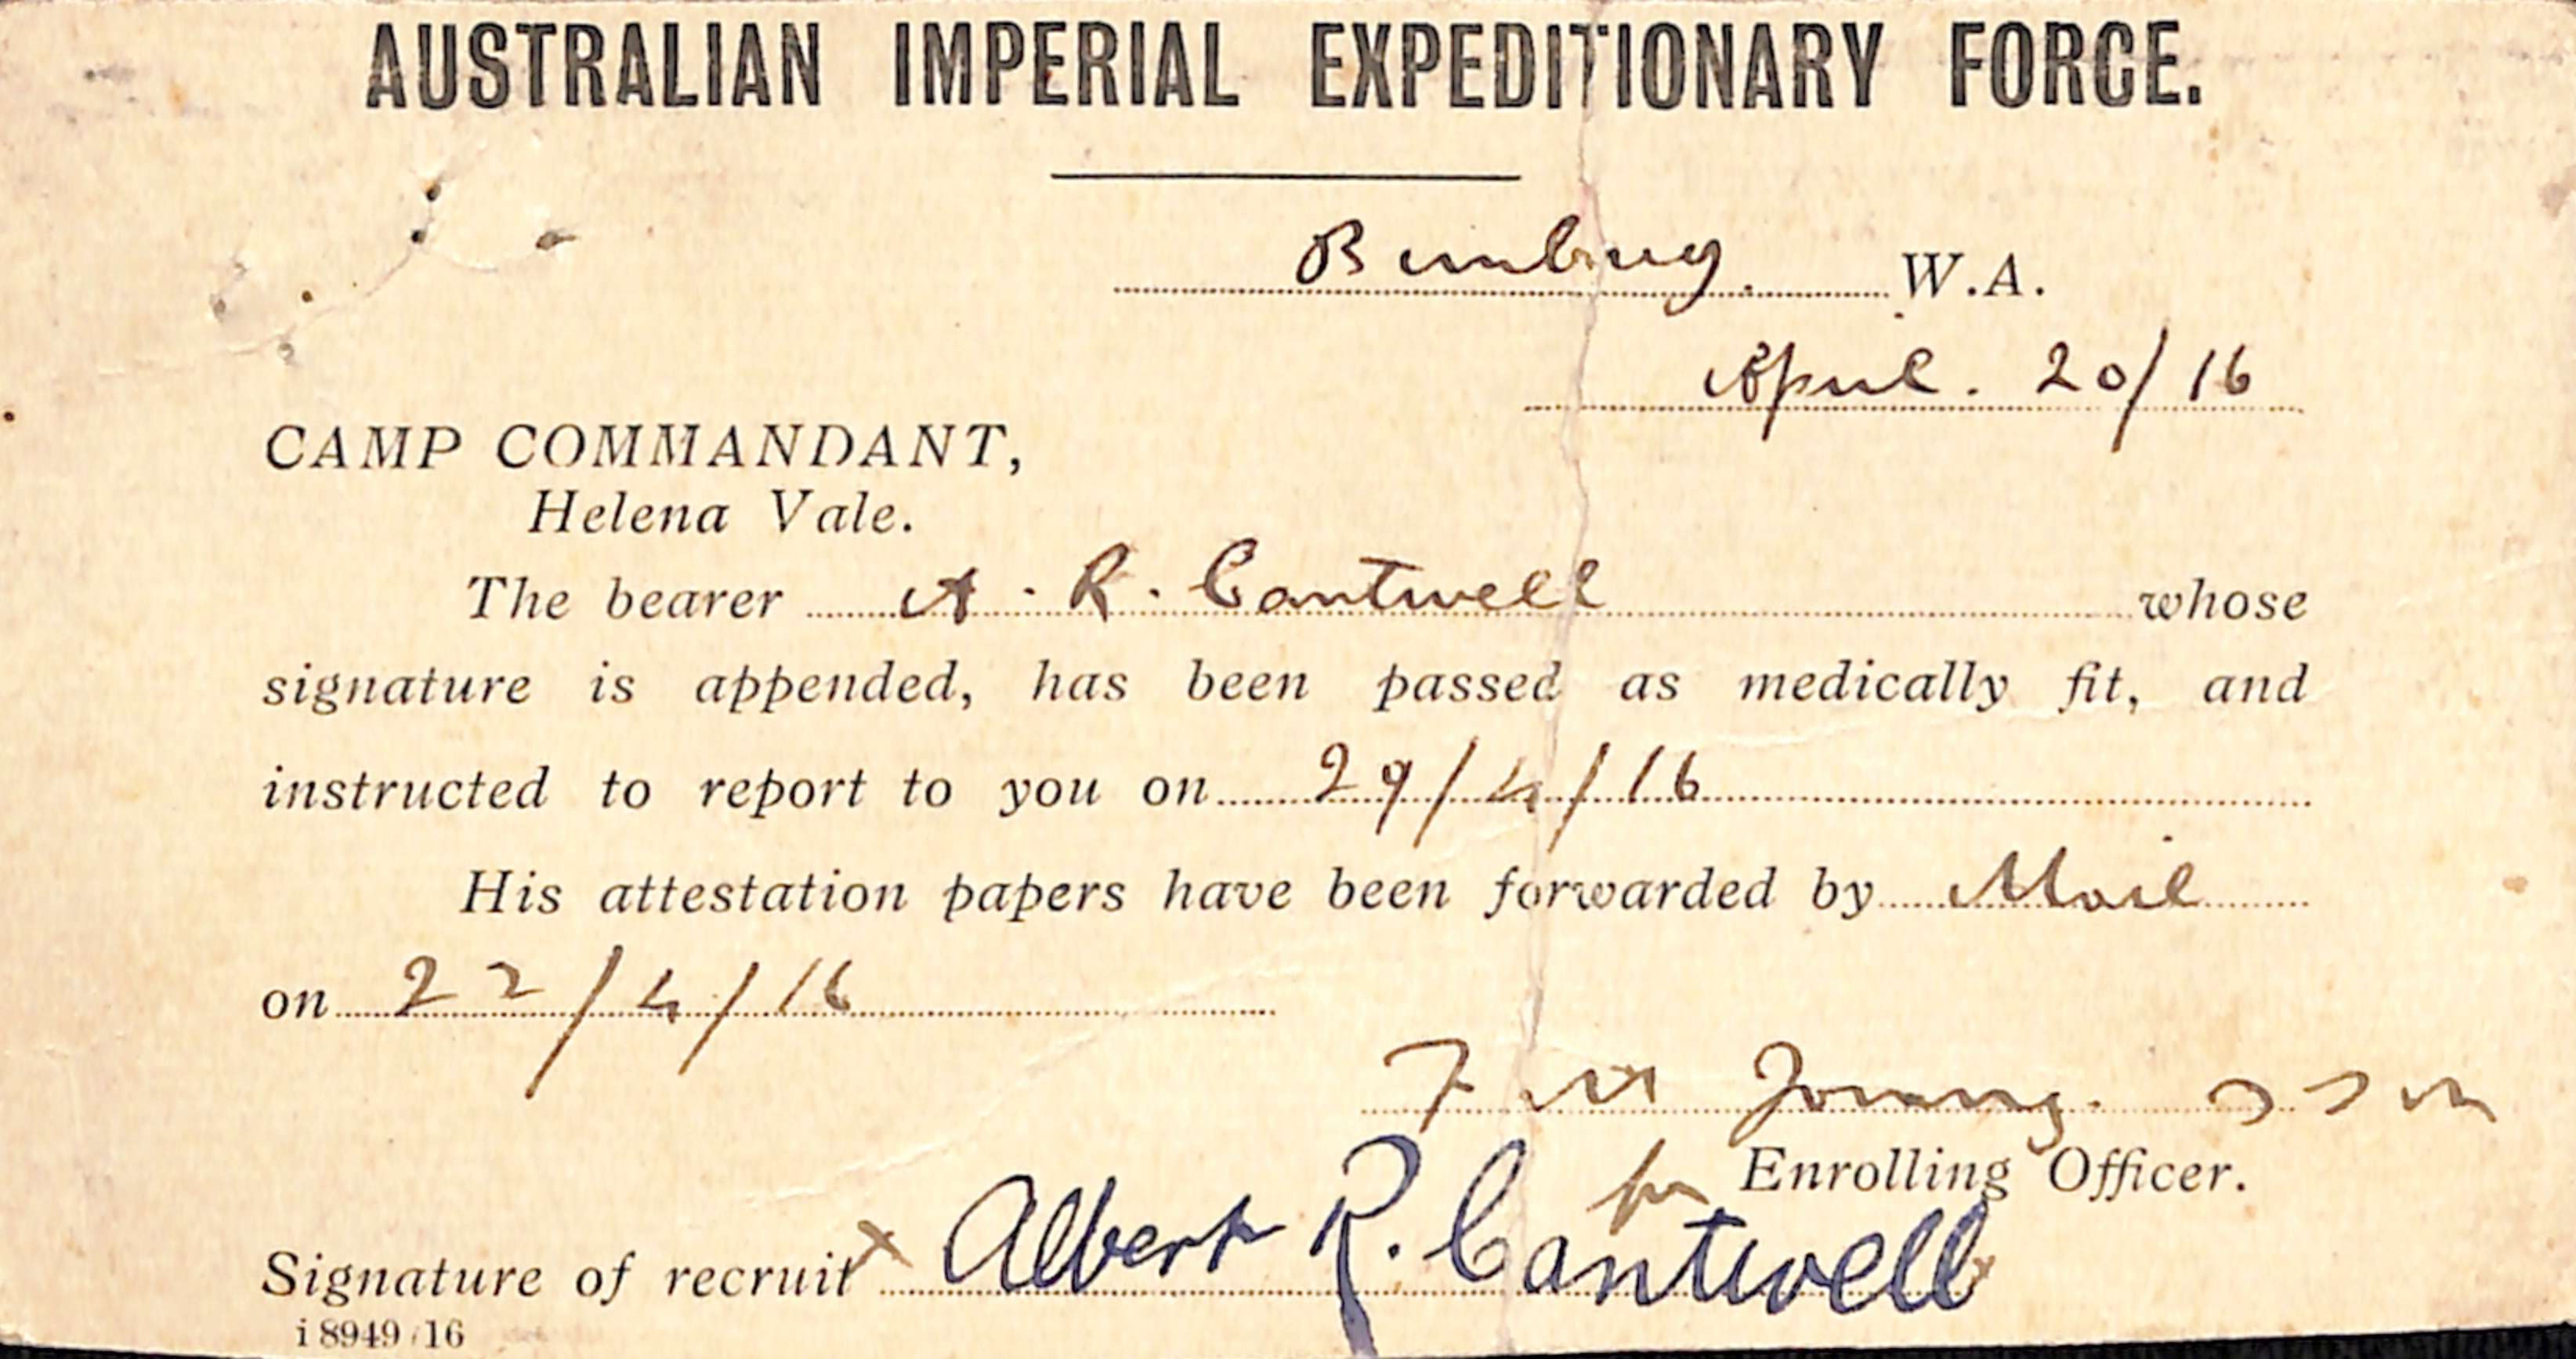 AUSTRALIAN IMPERIAL EXPEDITIONARY FORCE.
Bunbury. W.A.
April. 20/16
CAMP COMMANDANT,
Helena Vale.
The bearer A. R. Cantwell whose
signature is appended, has been passed as medically fit, and
instructed to report to you on 29/4/16
His attestation papers have been forwarded by Mail
on 22/4/16
F
for Enrolling Officer.
Signature of recruit x Albert R. Cantwell
i8949/16